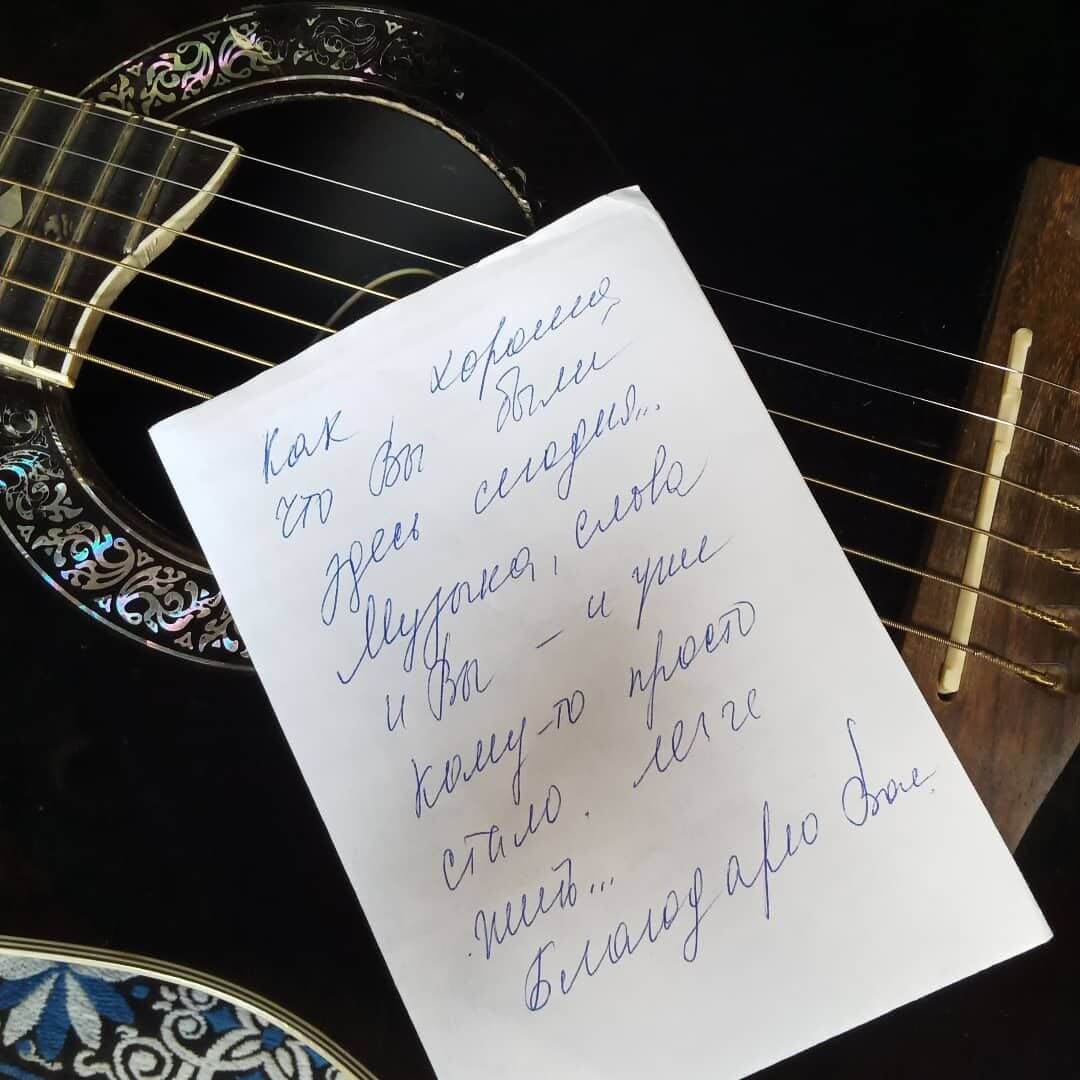 Как хорошо,
что Вы были
здесь сегодня...
Музыка, слова
и Вы - и уже
кому-то просто
стало легче
жить...
Благодарю Вас.